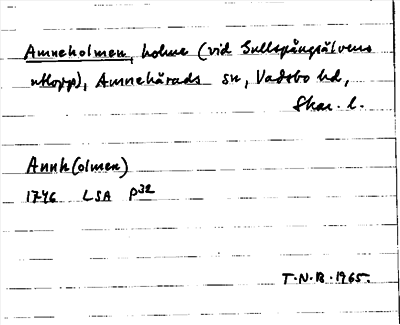 Amneholmen, holme (vid Gullspångsälvens
utlopp), Amnehärads sn, Vadsbo hd,
Skar. l.
Annh(olmen)
1746 LSA P32
T.N.B. 1965.